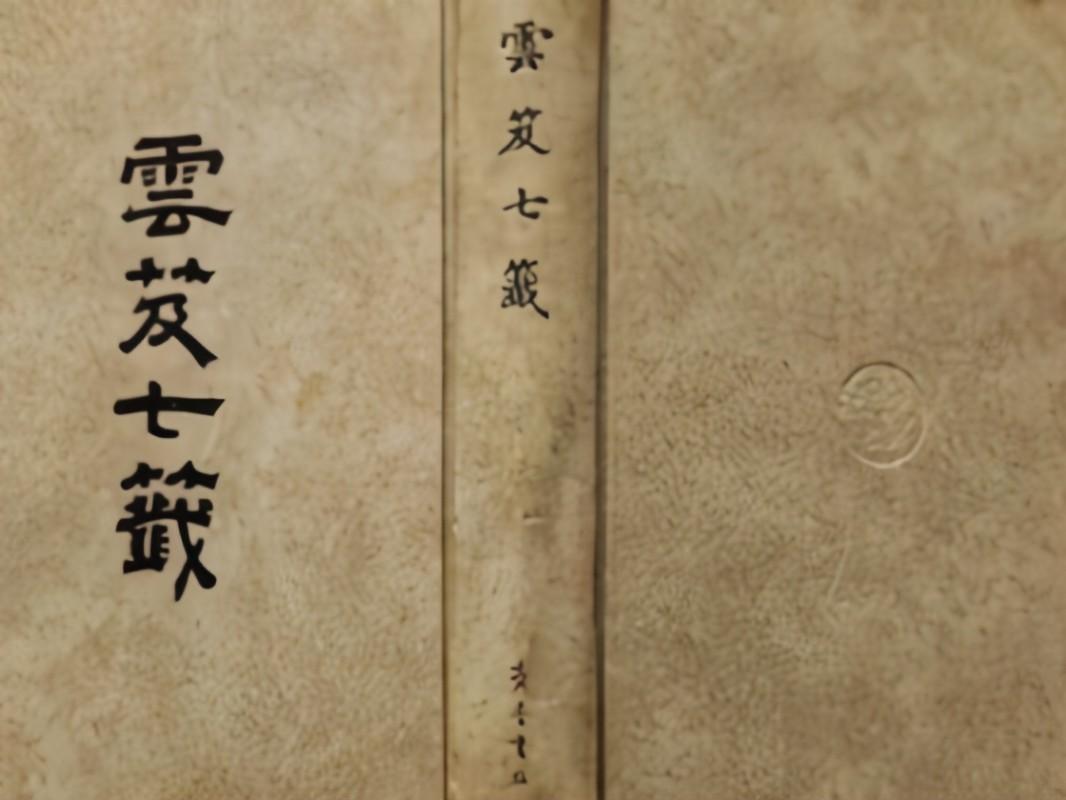 雲笈七籤
雲笈七籤